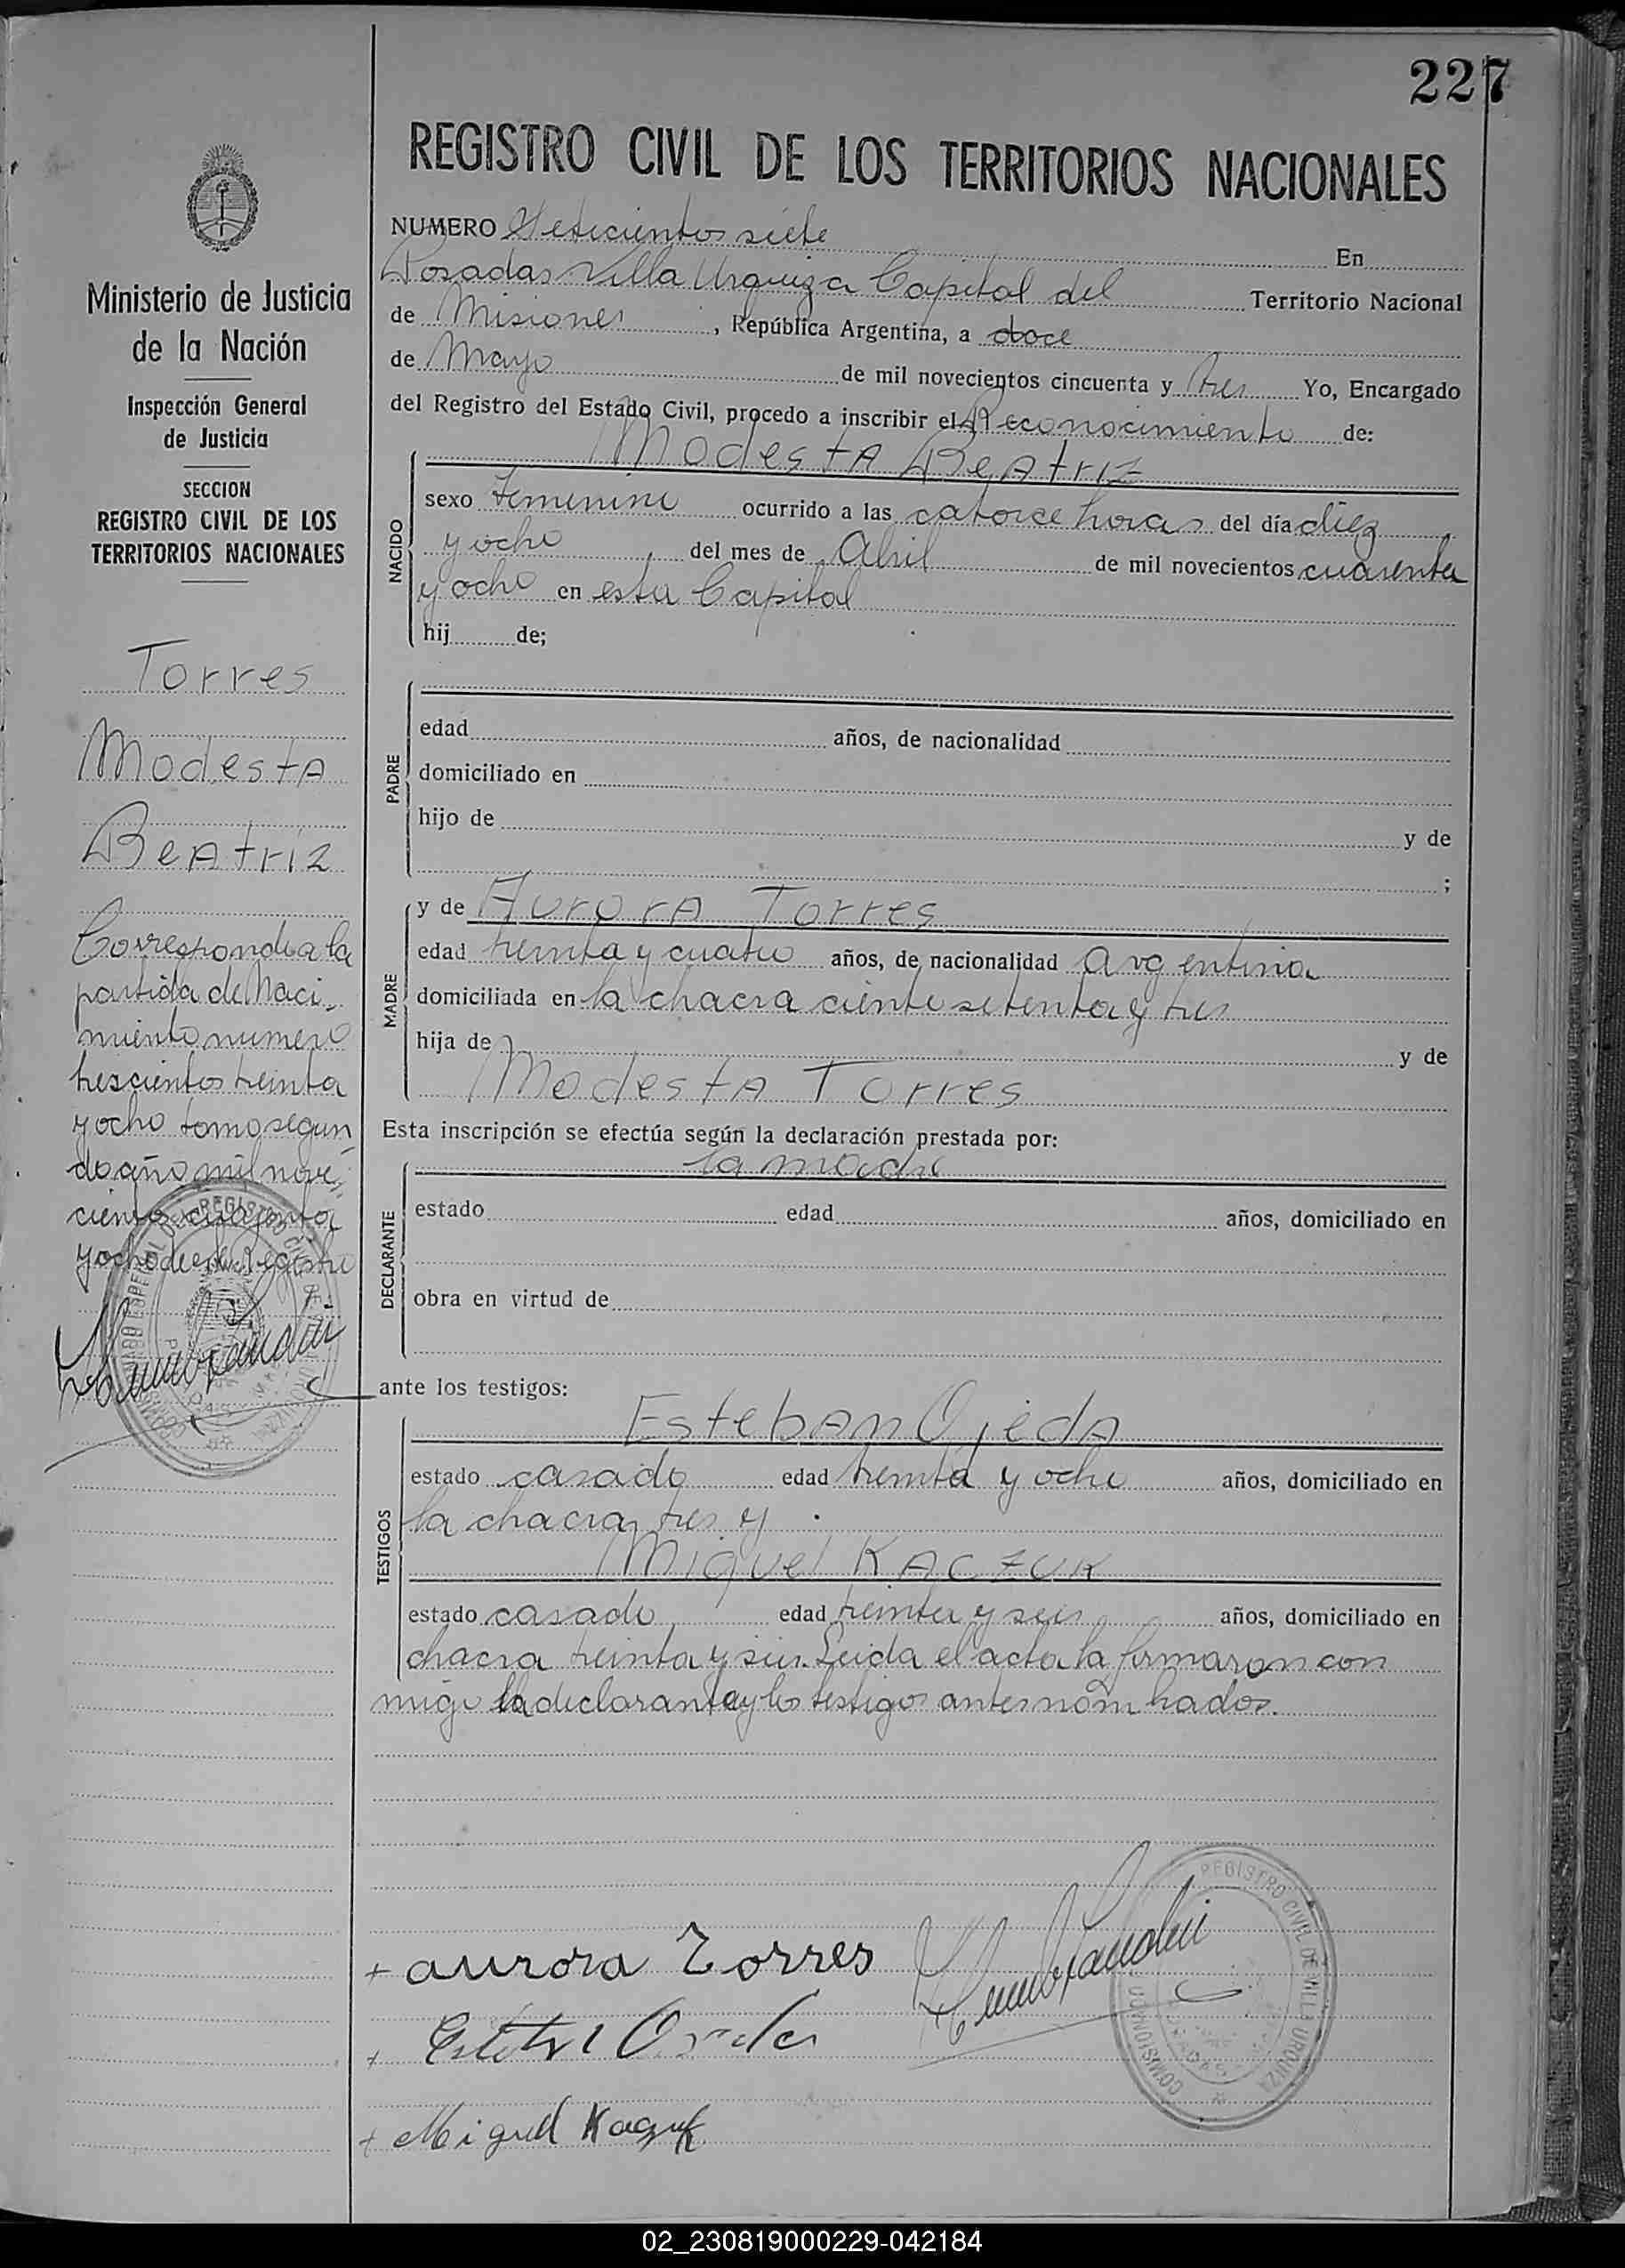 227
REGISTRO CIVIL DE LOS TERRITORIOS NACIONALES
Ministerio de Justicia
de la Nación
Inspección General
de Justicia
SECCION
REGISTRO CIVIL DE LOS
TERRITORIOS NACIONALES
Torres
Modesta
Beatriz
Corresponde a la
partida de Naci-
miento numero
trescientos treinta
y ocho tomo segun
do año mil nove-
cientos cuarenta
y ocho de este Registro
NUMERO Setecientos siete En
Posadas Villa Urquiza Capital del Territorio Nacional
de Misiones, República Argentina, a doce
de Mayo de mil novecientos cincuenta y tres Yo, Encargado
del Registro del Estado Civil, procedo a inscribir el Reconocimiento de:
Modesta Beatriz
NACIDO
sexo femenino ocurrido a las catorce horas del día diez
y ocho del mes de Abril de mil novecientos cuarenta
y ocho en esta Capital
hij de;
PADRE
edad años, de nacionalidad
domiciliado en
hijo de y de
;
MADRE
y de Aurora Torres
edad treinta y cuatro años, de nacionalidad Argentina
domiciliada en la chacra ciento setenta y tres
hija de y de
Modesta Torres
Esta inscripción se efectúa según la declaración prestada por:
la madre
DECLARANTE
estado edad años, domiciliado en
obra en virtud de
ante los testigos:
Esteban Ojeda
TESTIGOS
estado casado edad treinta y ocho años, domiciliado en
la chacra tres y
Miguel KACZUK
estado casado edad treinta y seis años, domiciliado en
chacra treinta y seis. Leida el acta la firmaron con
migo la declarante y los testigos antes nombrados.
+ aurora Torres
+
+ Miguel Kaczuk
REGISTRO CIVIL DE VILLA URQUIZA
02_230819000229-042184